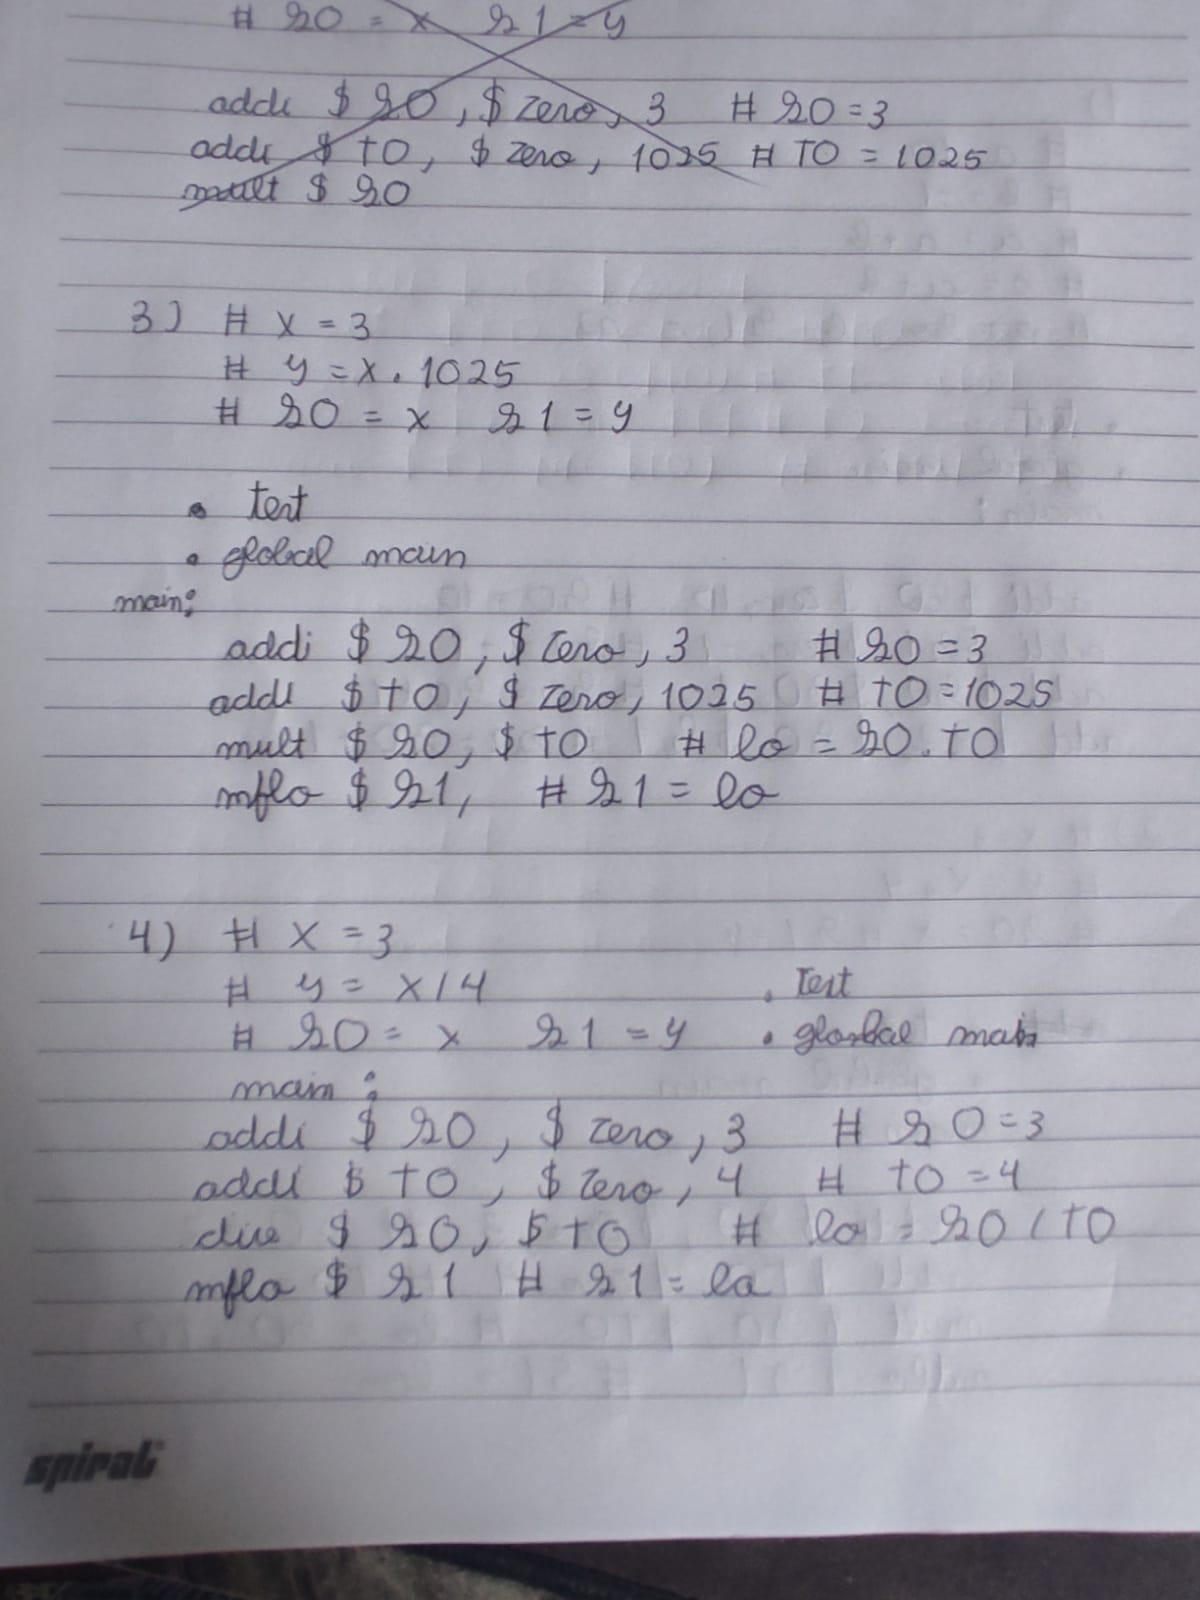 # s0 = x s1 = y
addi $ s0, $ zero, 3 # s0 = 3
addi $ t0, $ zero, 1025 # T0 = 1025
mult $ s0
3) # x = 3
# y = x . 1025
# s0 = x s1 = y
. text
. global main
main:
addi $ s0, $ zero, 3 # s0 = 3
addi $ t0, $ zero, 1025 # t0 = 1025
mult $ s0, $ t0 # lo = s0 . t0
mflo $ s1, # s1 = lo
4) # x = 3
# y = x / 4 . text
# s0 = x s1 = y . global main
main:
addi $ s0, $ zero, 3 # s0 = 3
addi $ t0, $ zero, 4 # t0 = 4
div $ s0, $ t0 # lo = s0 / t0
mflo $ s1 # s1 = lo
spiral